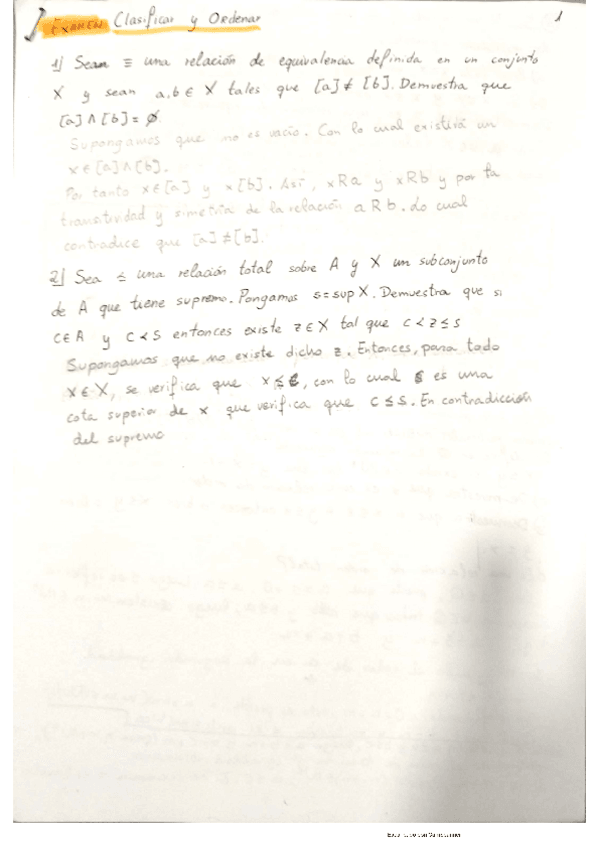 EXAMEN Clasificar y Ordenar 1
1) Sean ≡ una relación de equivalencia definida en un conjunto
X y sean a,b ∈ X tales que [a] ≠ [b]. Demuestra que
[a] ∧ [b] = ∅.
Supongamos que no es vacío. Con lo cual existirá un
x ∈ [a] ∧ [b].
Por tanto x ∈ [a] y x [b]. Así, xRa y xRb y por la
transitividad y simetría de la relación aRb. Lo cual
contradice que [a] ≠ [b].
2) Sea ≤ una relación total sobre A y X un subconjunto
de A que tiene supremo. Pongamos s = sup X. Demuestra que si
c ∈ A y c < s entonces existe z ∈ X tal que c < z ≤ s
Supongamos que no existe dicho z. Entonces, para todo
x ∈ X, se verifica que x ≤ c, con lo cual es una
cota superior de x que verifica que c ≤ s. En contradicción
del supremo